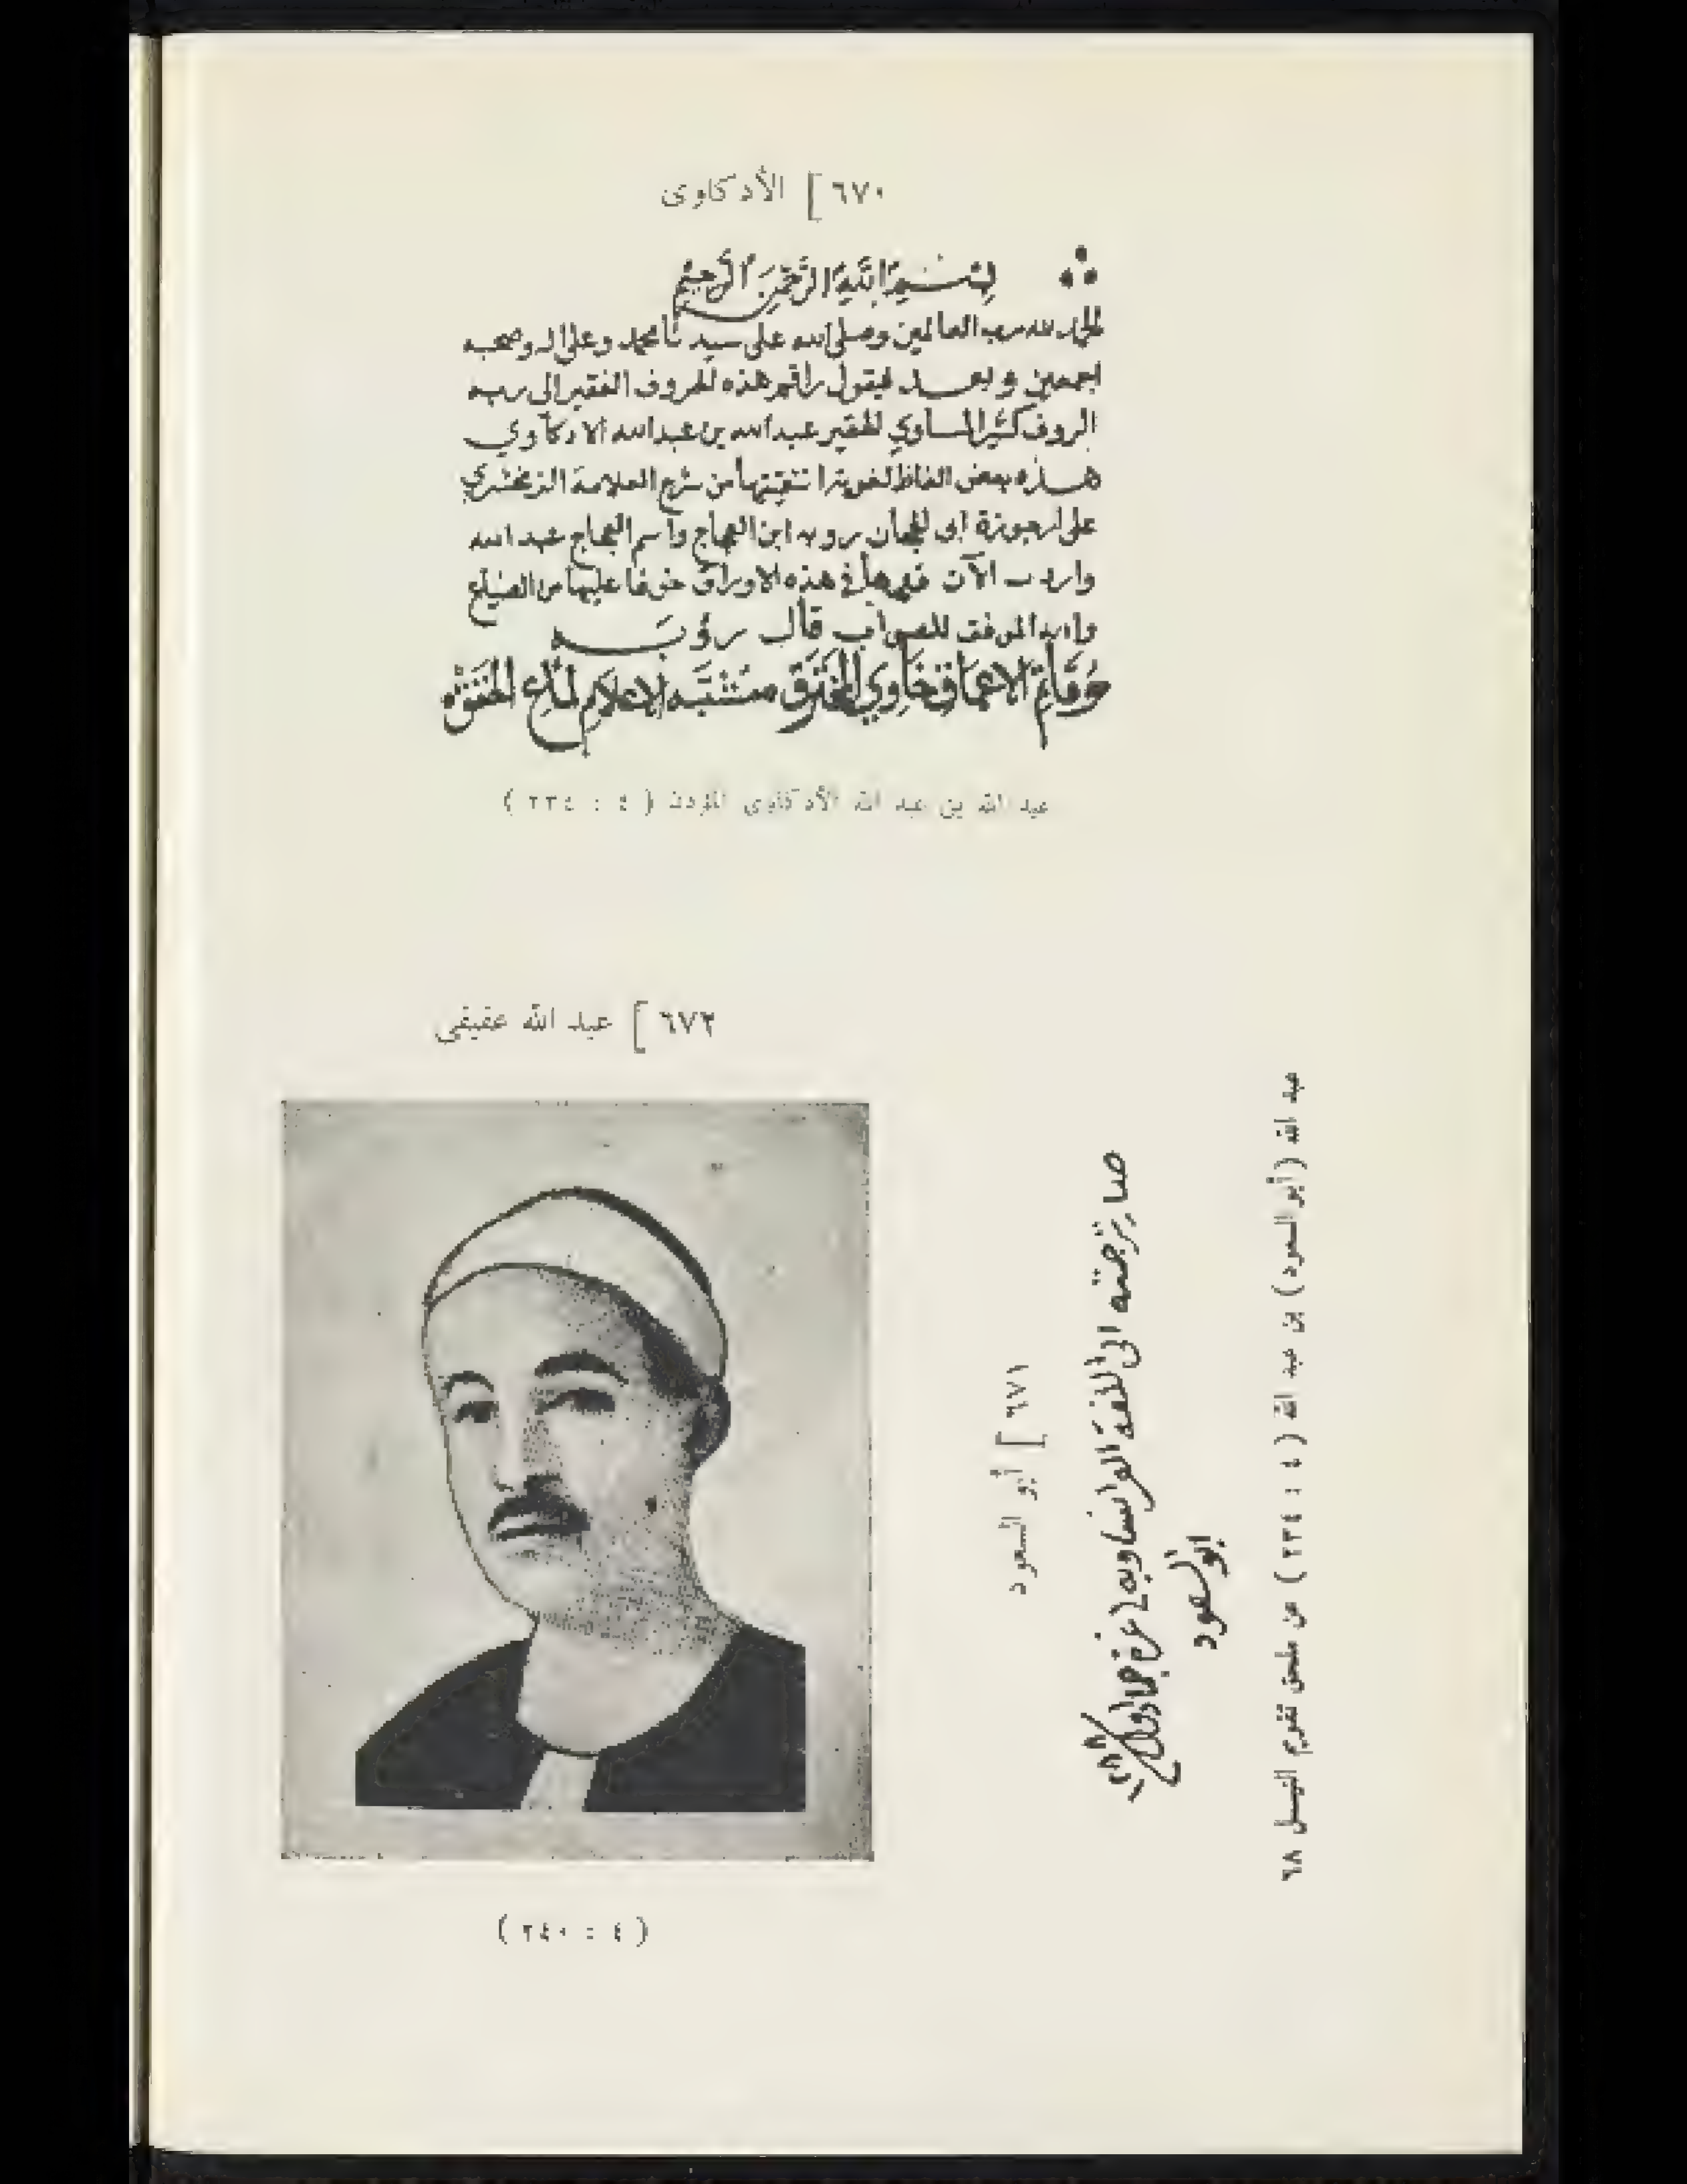 ٦٧٠ ] الأدكاوى
بسم الله الرحمن الرحيم
الحمد لله رب العالمين وصلى الله على سيدنا محمد وعلى اله وصحبه
اجمعين وبعد فيقول راقم هذه الحروف الفقير الى ربه
الروف كثير المساوي الحقير عبد الله بن عبد الله الادكاوي
هذه بعض الفاظ لغوية انتقيتها من شرح العلامة الزمخشري
على ارجوزة ابى الجحاف روبه ابن العجاج واسم العجاج عبد الله
واردت الآن في هذه الاوراق خوفا عليها من الضياع
والله الموفق للصواب قال رؤبة
وقاتم الاعماق خاوي المخترق مشتبه الاعلام لماع الخفق
عبد الله بن عبد الله الأدكاوى المؤذن ( ٤ : ٢٣٤ )
٦٧١ ] أبو السعود
صار ترجمته الى اللغة الفرنساويه في غرة جماد
ابو السعود
عبد الله (أبو السعود) بن عبد الله ( ٤ : ٢٣٤ ) عن ملحق تقويم النيل ٦٨
٦٧٢ ] عبد الله عفيفى
( ٤ : ٢٤٠ )